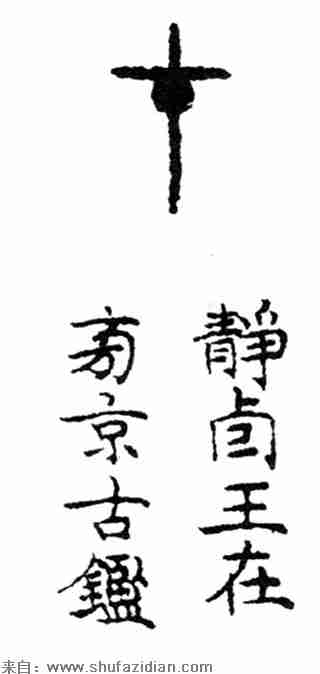 靜卣王在
京古鑑
来自：www.shufazidian.com